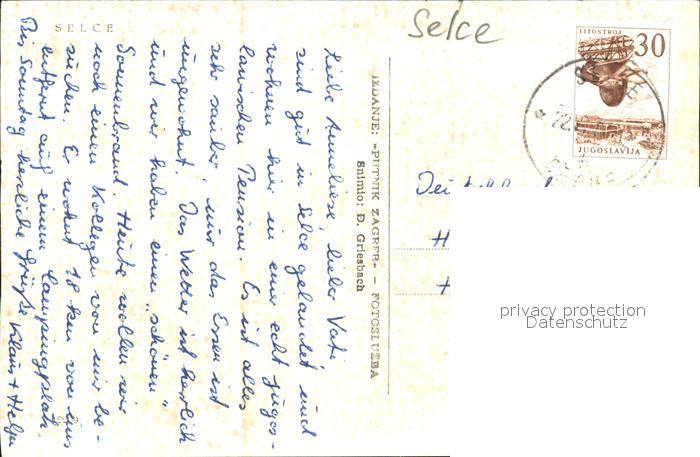 SELCE
Selce
Liebe Anneliese, lieber Vati,
sind gut in Selce gelandet und
wohnen hier in einer echt jugos-
lawischen Pension. Es ist alles
sehr sauber, nur das Essen ist
ungewohnt. Das Wetter ist herrlich
und wir haben einen „schönen"
Sonnenbrand. Heute wollen wir
noch einen Kollegen von mir be-
suchen. Er wohnt 18 km von uns
entfernt auf einem Campingplatz.
Bis Sonntag herzliche Grüße Klaus + Helga
IZDANJE: »PUTNIK ZAGREB« — FOTOSLUŽBA
Snimio: D. Griesbach
LITOSTROJ
30
JUGOSLAVIJA
SELCE
22.
H
privacy protection
Datenschutz